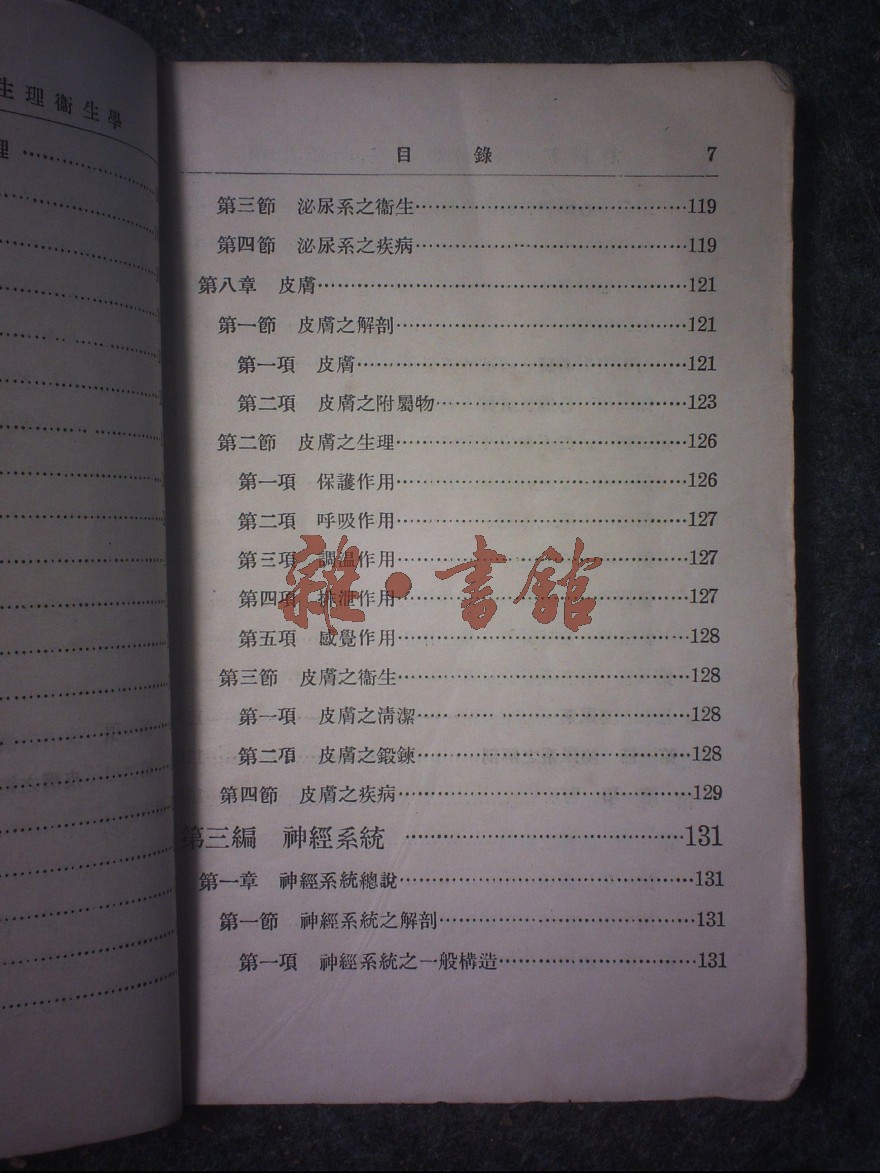 生理衞生學
理 ………
目錄 7
第三節 泌尿系之衞生………………119
第四節 泌尿系之疾病………………119
第八章 皮膚………………121
第一節 皮膚之解剖………………121
第一項 皮膚………………121
第二項 皮膚之附屬物………………123
第二節 皮膚之生理………………126
第一項 保護作用………………126
第二項 呼吸作用………………127
第三項 調溫作用………………127
第四項 排泄作用………………127
第五項 感覺作用………………128
第三節 皮膚之衞生………………128
第一項 皮膚之淸潔………………128
第二項 皮膚之鍛鍊………………128
第四節 皮膚之疾病………………129
第三編 神經系統 ………………131
第一章 神經系統總說………………131
第一節 神經系統之解剖………………131
第一項 神經系統之一般構造………………131
雜·書館